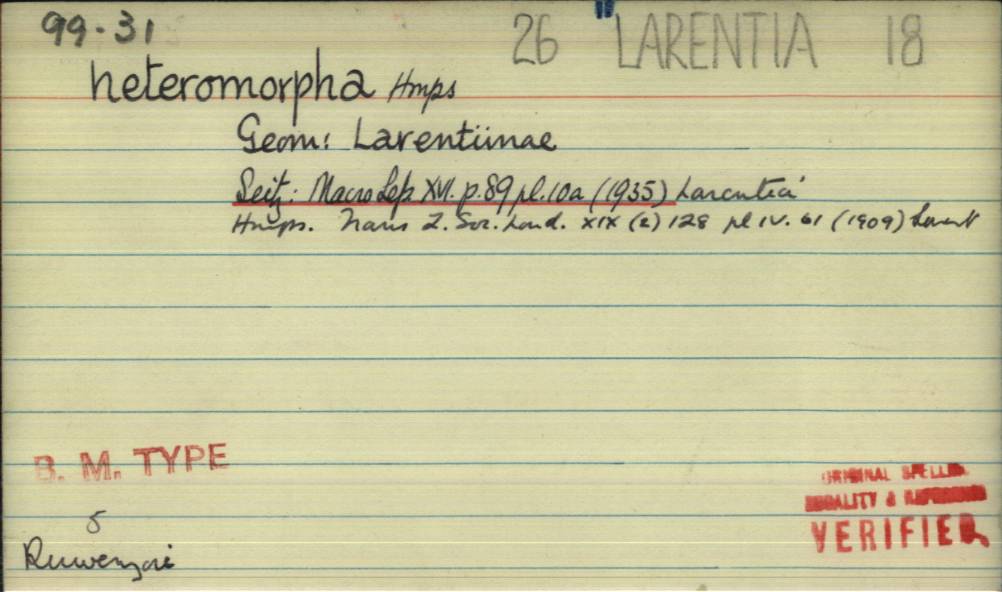 99-31
26 "LARENTIA 18
heteromorpha Hmps
Geom: Larentiinae
Seitz: Macro Lep XVI. p.89 pl.10a (1935) Larentia
Hmps. Trans Z. Soc. Lond. XIX (2) 128 pl IV. 61 (1909) Larent
B. M. TYPE
ORIGINAL SPELLING
LOCALITY & REFERENCE
VERIFIED
Ruwenzori